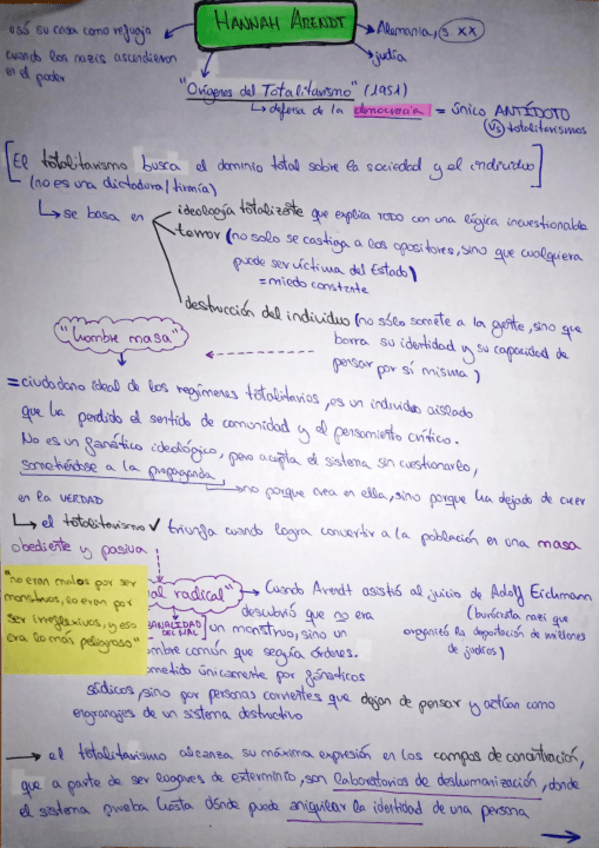 HANNAH ARENDT
usó su casa como refugio
cuando los nazis ascendieron
en el poder
Alemania, s. XX
judía
"Orígenes del Totalitarismo" (1951)
defensa de la democracia = único ANTÍDOTO
vs totalitarismos
[El totalitarismo busca el dominio total sobre la sociedad y el individuo]
(no es una dictadura/tiranía)
se basa en
ideología totalizante que explica TODO con una lógica incuestionable
terror (no solo se castiga a los opositores, sino que cualquiera
puede ser víctima del Estado)
= miedo constante
destrucción del individuo (no sólo somete a la gente, sino que
borra su identidad y su capacidad de
pensar por sí misma)
"hombre masa"
= ciudadano ideal de los regímenes totalitarios, es un individuo aislado
que ha perdido el sentido de comunidad y el pensamiento crítico.
No es un fanático ideológico, pero acepta el sistema sin cuestionarlo,
sometiéndose a la propaganda
no porque crea en ella, sino porque ha dejado de creer
en la VERDAD
el totalitarismo ✓ triunfa cuando logra convertir a la población en una masa
obediente y pasiva
"no eran malos por ser
monstruos, lo eran por
ser irreflexivos, y eso
era lo más peligroso"
mal radical"
BANALIDAD
DEL MAL]
Cuando Arendt asistió al juicio de Adolf Eichmann
(burócrata nazi que
organizó la deportación de millones
de judíos)
descubrió que no era
un monstruo, sino un
hombre común que seguía órdenes.
ometido únicamente por fanáticos
sádicos, sino por personas corrientes que dejan de pensar y actúan como
engranajes de un sistema destructivo
→ el totalitarismo alcanza su máxima expresión en los campos de concentración,
que a parte de ser lugares de exterminio, son laboratorios de deshumanización, donde
el sistema prueba hasta dónde puede aniquilar la identidad de una persona